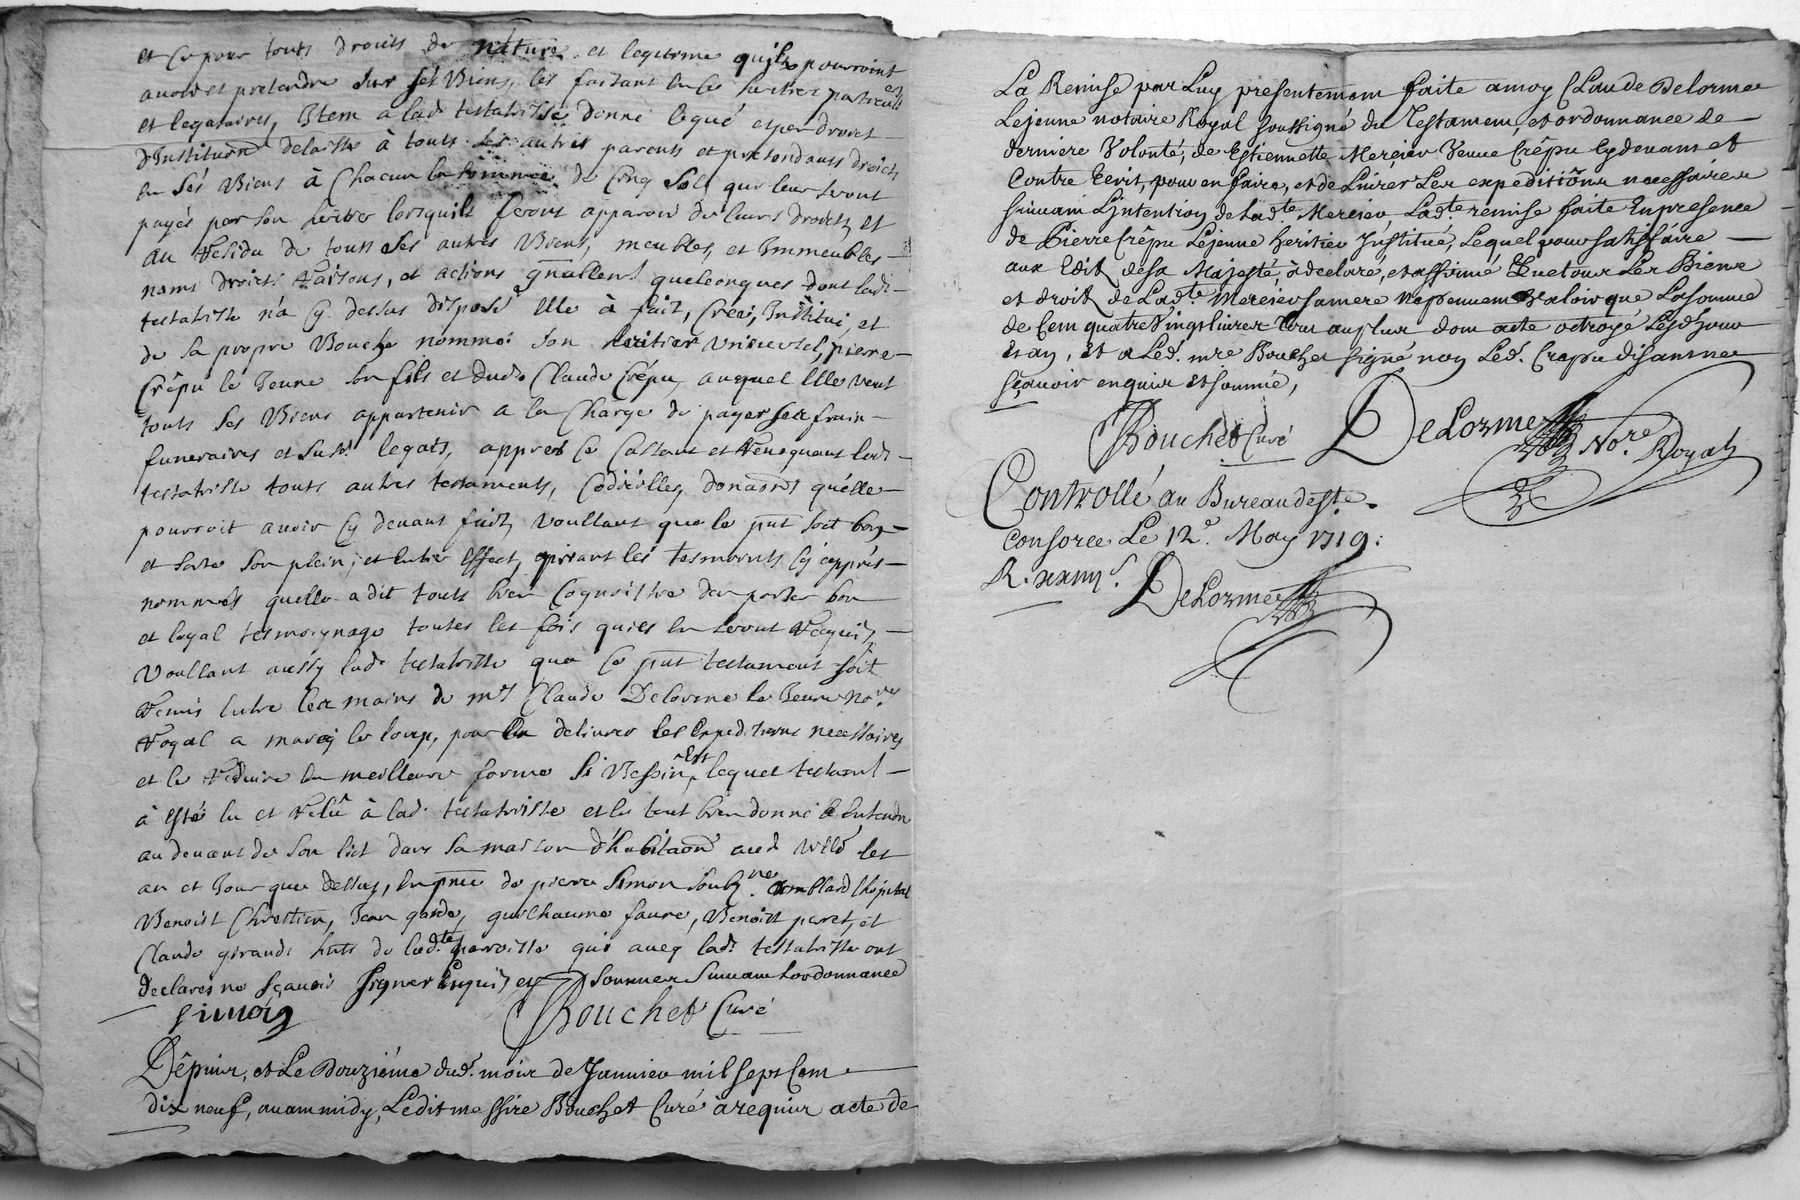 et ce pour touts droits de nature et legitime qu'ils pourroint
avoir et pretendre sur ses Biens, les faisant en ce heritiers particuls
et legataires, Item a lad. testatrisse donné legué et par droict
d'Institution delaissé à touts ses autres parents et pretendants droicts
en ses Biens à Chacun la somme de Cinq sols que leur seront
payés par son heritier lorsquils feront apparoir de leurs droicts et
au Residu de touts ses autres Biens, meubles, et Immeubles
noms droicts Raisons, et actions gnallemt quelconques dont lad.
testatrisse n'a cy dessus disposé Elle à fait, Créé, Institué, et
de sa propre Bouche nommé son heritier universel, pierre
Crêpu le Jeune son fils et dud. Claude Crépu, auquel Elle veut
touts ses Biens appartenir a la Charge de payer ses frais
funeraires et susd. legats, appres Ce Cassant et Revoquant lad.
testatrisse touts autres testaments, Codicilles, donaons qu'elle
pourroit avoir cy devant faict, Voullant que le pnt soit bon,
et sorte son plein, et entier Effect, priant les tesmoints cy appres
nommés quelle a dit touts bien Cognoistre den porter bon
et loyal tesmoignage toutes les fois quils en seront Requis,
Voullant aussy lad. testatrisse que Ce pnt testament soit
Remis Entre les mains de me Claude Delorme le Jeune Nore
Royal a marcy le loup, pour En delivrer les Expeditions necessaires
et le Reduire En meilleure forme si Besoin Est, lequel testamt
à esté lu et Relû à lad. testatrisse et le tout bien donné a Entendre
au devant de son lict dans sa maison d'habitaon aud. les
an et Jour que dessus, En pnce de pierre Simon soubz.né
Benoist Chrettien, Jean garde, guilhaume faure, Benoist paret, et
Claude giraud hnts de lad.te parroisse qui avec lad. testatrisse ont
declarés ne sçavoir signer Enquis, et sommes suivant Lordonnance
simon Bouchet Curé
Dêpuis, et Le Douziéme dud. mois de Janvier mil sept Cent
dix neuf, avant midy, Ledit messire Bouchet Curé à requis acte de
La Remise par Luy presentement faite a moy Claude Delorme
Lejeune notaire Royal soussigné du Testament, et ordonnance de
derniere Volonté, de Estiennette Mercier Veuve Crêpu cydevant et
Contre Ecrit, pour en faire, et de Livrer Les expeditions necessaires
suivant L'jntention de Lad.te Mercier, Lad.te remise faite En presence
de Pierre Crêpu Lejeune heritier Jnstitué, Lequel pour satisfaire
aux Edits de sa Majesté à declaré, et affirmé Que tous Les Biens
et droits de Lad.te Mercier sa mere ne peuvent Valoir que La somme
de Cent quatre Vingt livres Tout au plus dont acte octroyé Lesd. jour
et an, Et a Led. mre Bouchet signé non Led. Crepu disant ne
sçavoir enquis et sommé,
Bouchet Curé DeLorme Nore Royal
Controllé au Bureau de Ste
Consorce Le 12e May 1719.
DeLorme